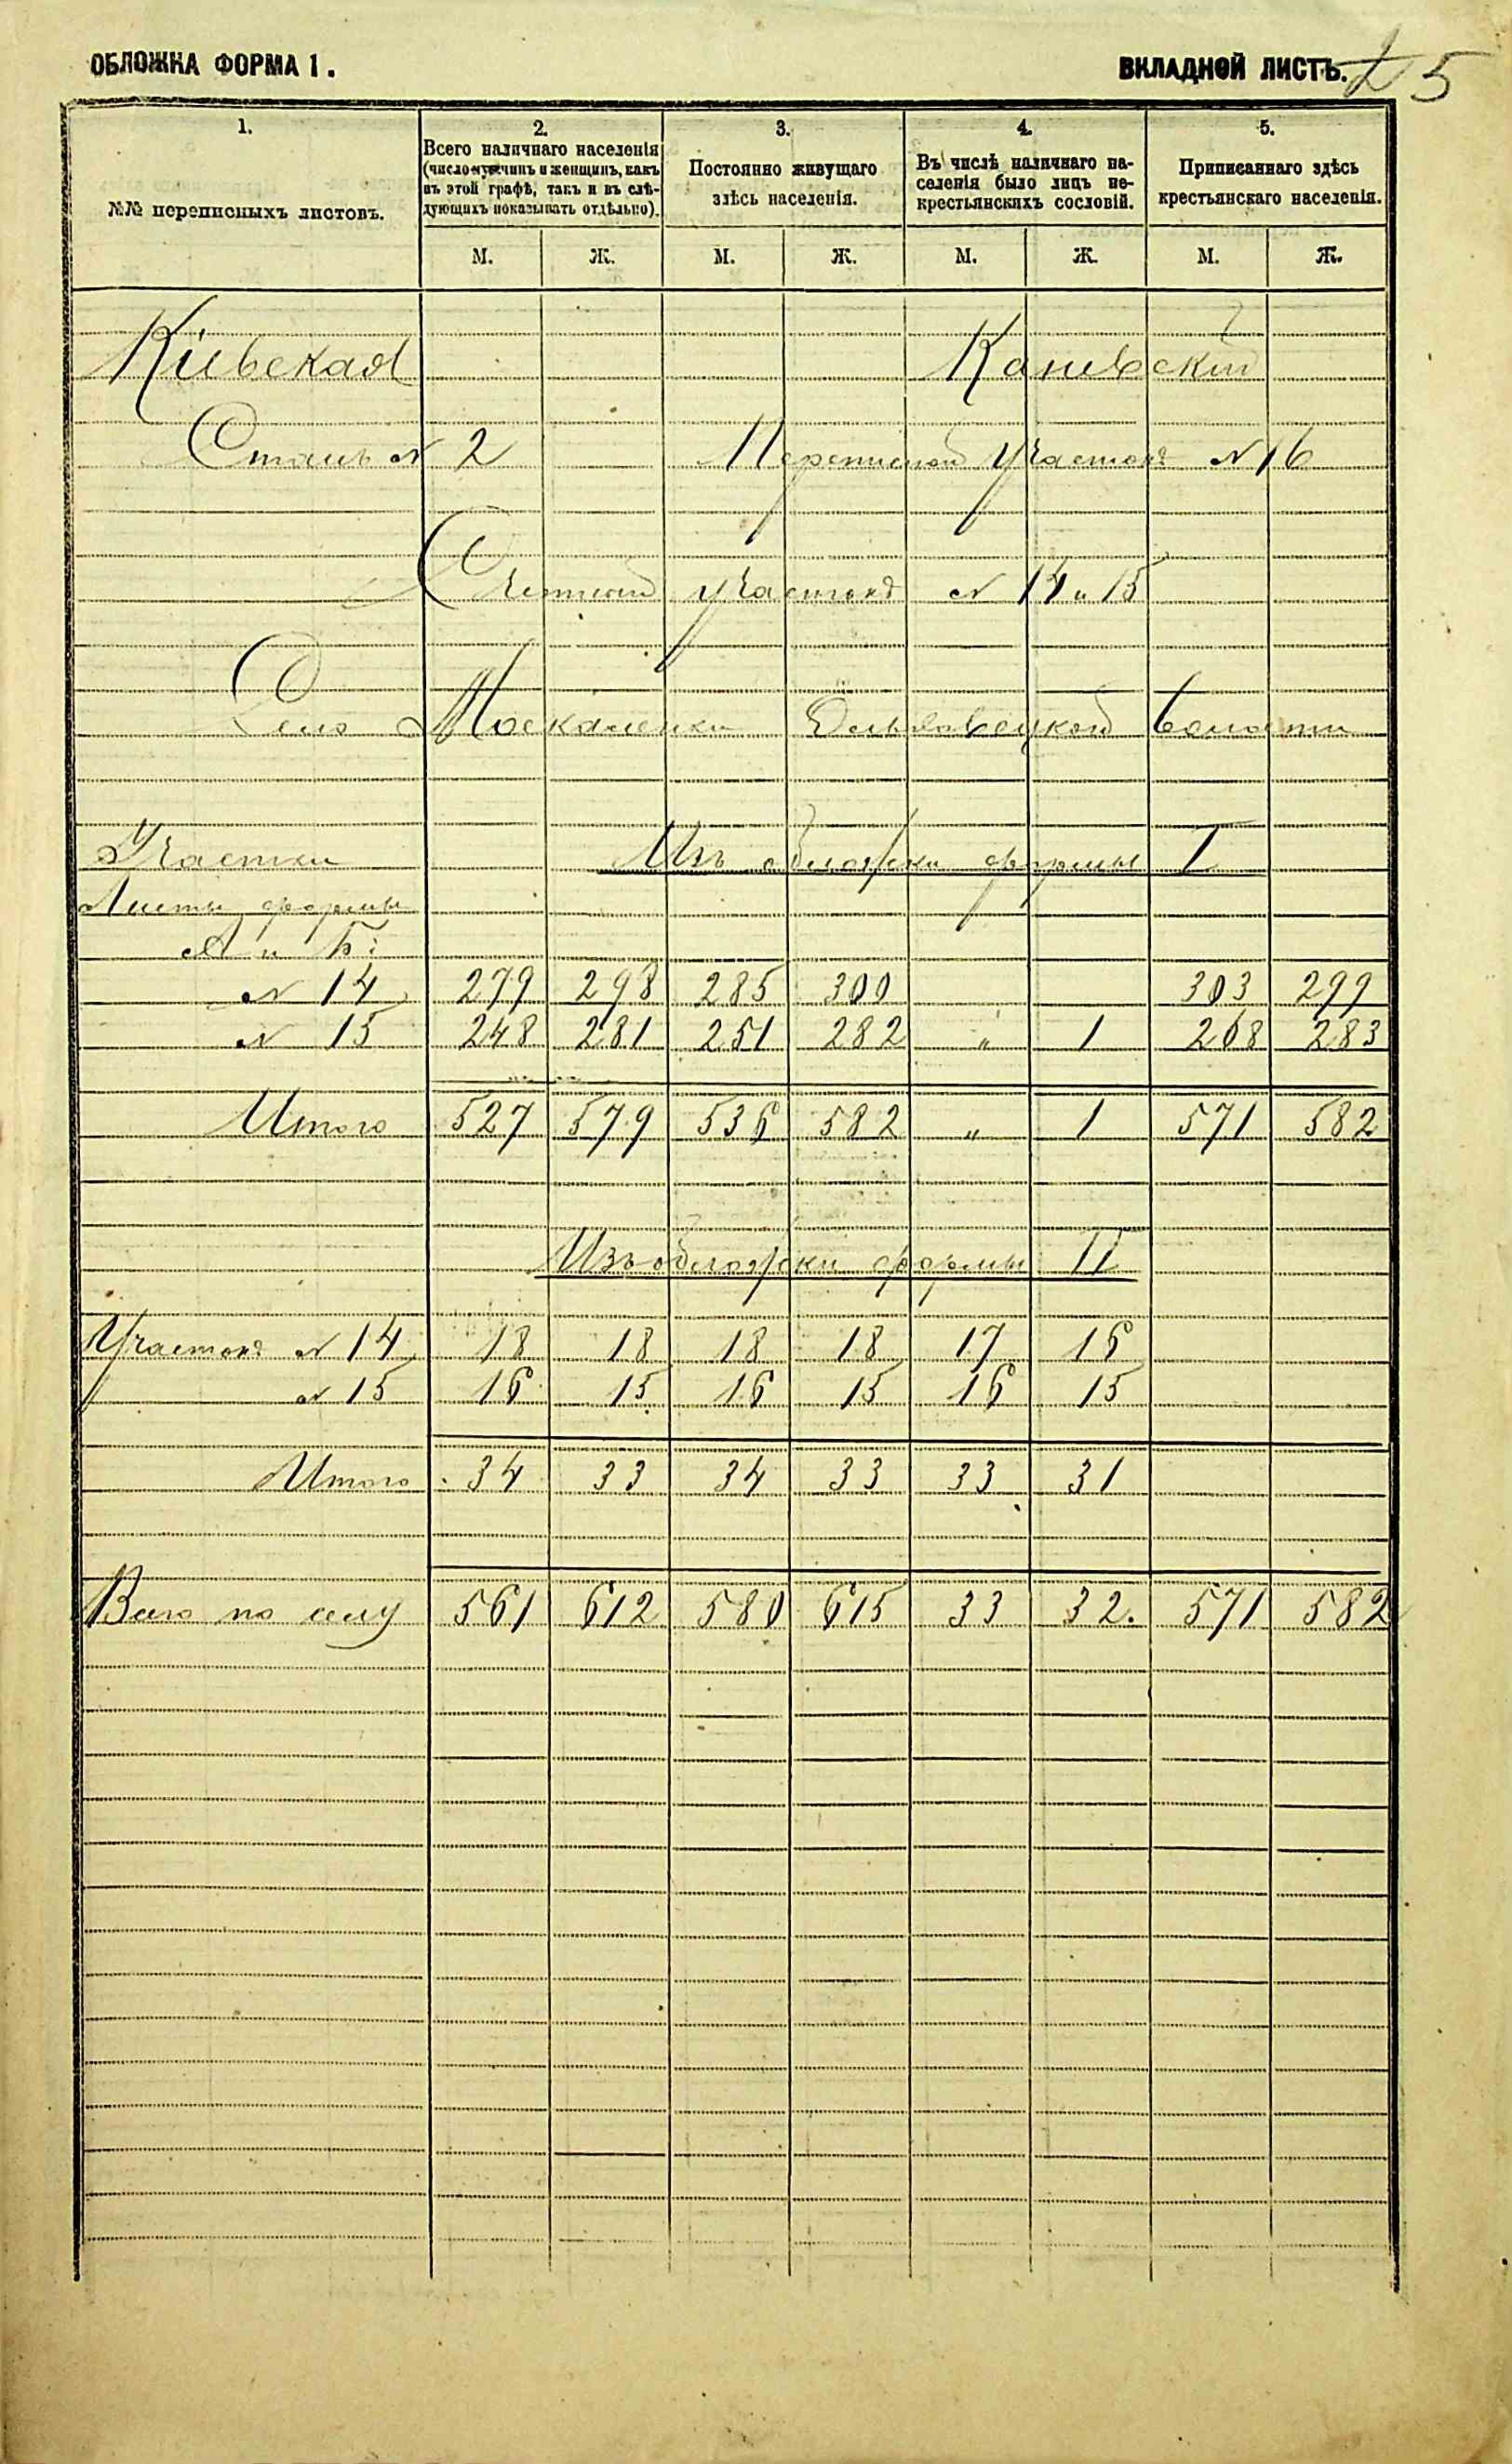 ОБЛОЖКА ФОРМА 1. ВКЛАДНОЙ ЛИСТЪ. 5
1. 2. 3. 4. 5.
№№ переписныхъ листовъ.
Всего наличнаго населенія
(число мужчинъ и женщинъ, какъ
въ этой графѣ, такъ и въ слѣ-
дующихъ показывать отдѣльно).
Постоянно живущаго
здѣсь населенія.
Въ числѣ наличнаго на-
селенія было лицъ не-
крестьянскихъ сословій.
Приписаннаго здѣсь
крестьянскаго населенія.
М. Ж. М. Ж. М. Ж. М. Ж.
Кіевская Каневскій
Станъ № 2 Переписной участокъ № 16
Счетный участокъ № 14 и 15
Село Москаленки волости
Участки Изъ обложки формы I
Листы формы
А и Б:
№ 14 279 298 285 300 303 299
№ 15 248 281 251 282 " 1 268 283
Итого 527 579 536 582 " 1 571 582
Изъ обложки формы II
Участокъ № 14 18 18 18 18 17 16
№ 15 16 15 16 15 16 15
Итого 34 33 34 33 33 31
Всего по селу 561 612 580 615 33 32. 571 582